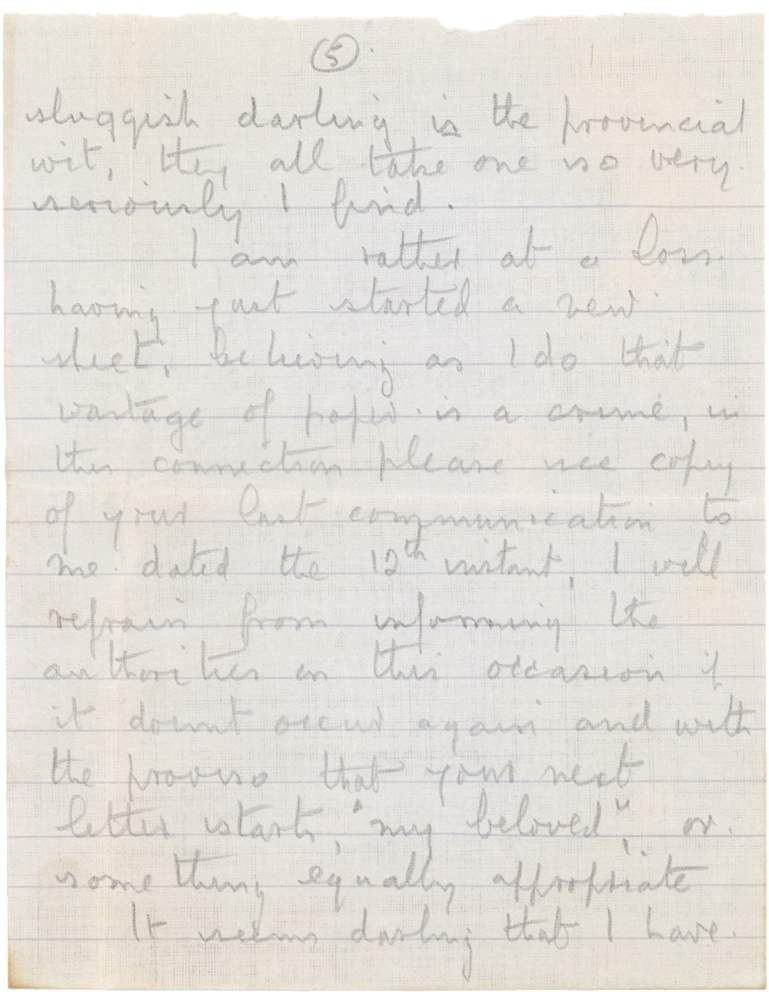 (5).
sluggish darling is the provincial
wit, they all take one so very
seriously I find.
I am rather at a loss
having just started a new
sheet, believing as I do that
wastage of paper is a crime, in
this connection please see copy
of your last communication to
me dated the 12th instant, I will
refrain from informing the
authorities on this occasion if
it doesnt occur again and with
the proviso that your next
letter starts, "my beloved", or
something equally appropriate
It seems darling that I have